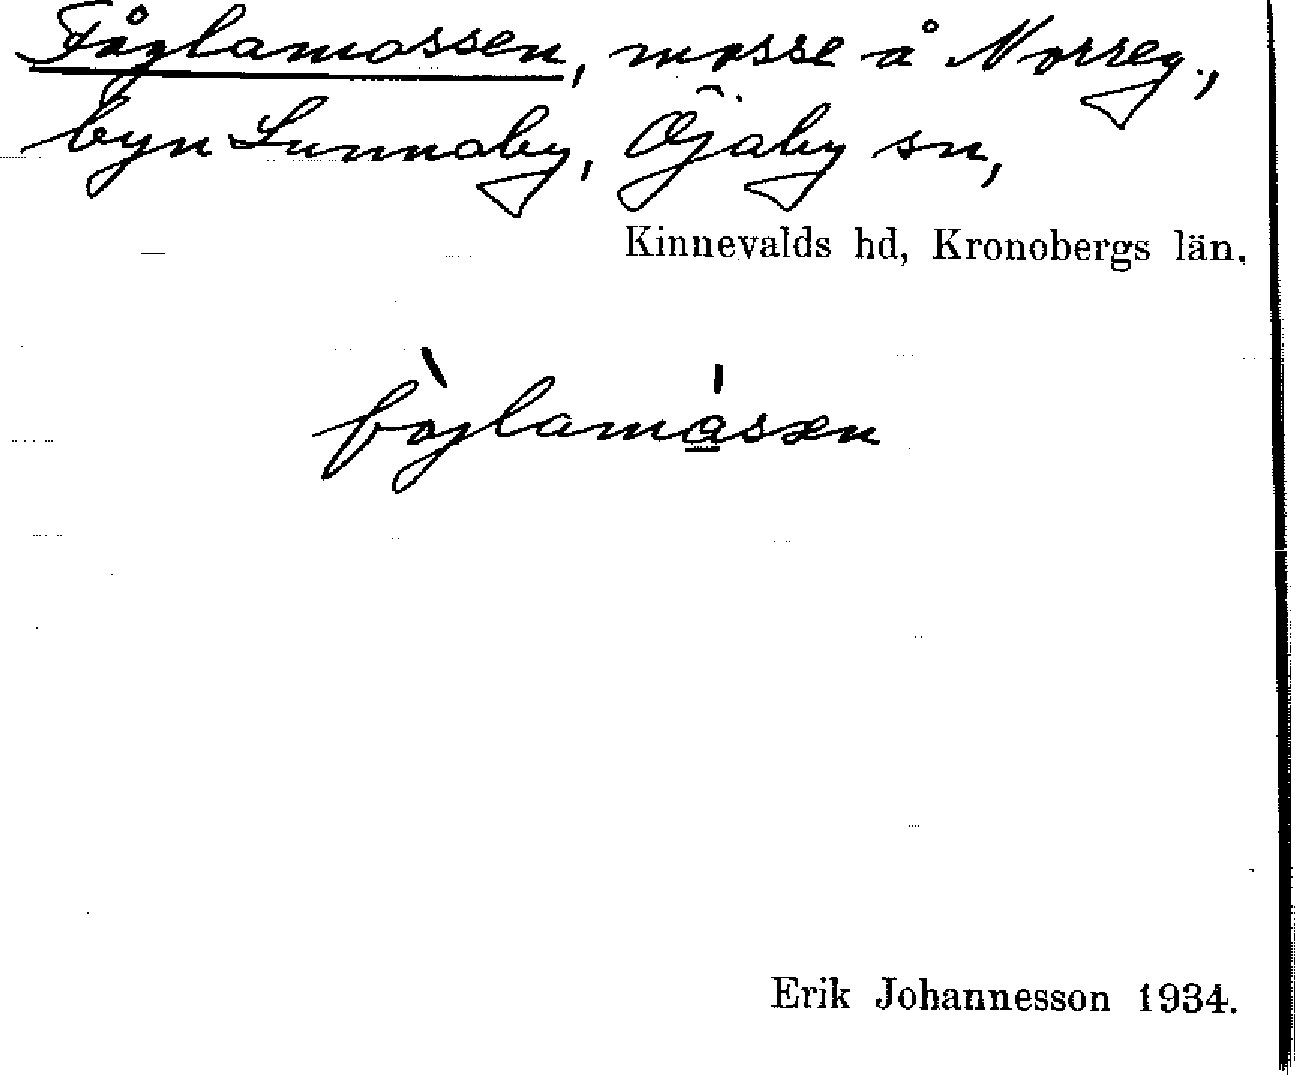 Fåglamossen, mosse å Norreg.,
byn Lunnaby, Öjaby sn,
Kinnevalds hd, Kronobergs län.
fòglamássen
Erik Johannesson 1934.